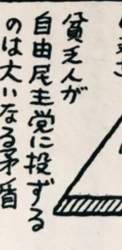 貧乏人が
自由民主党に投ずる
のは大いなる矛盾